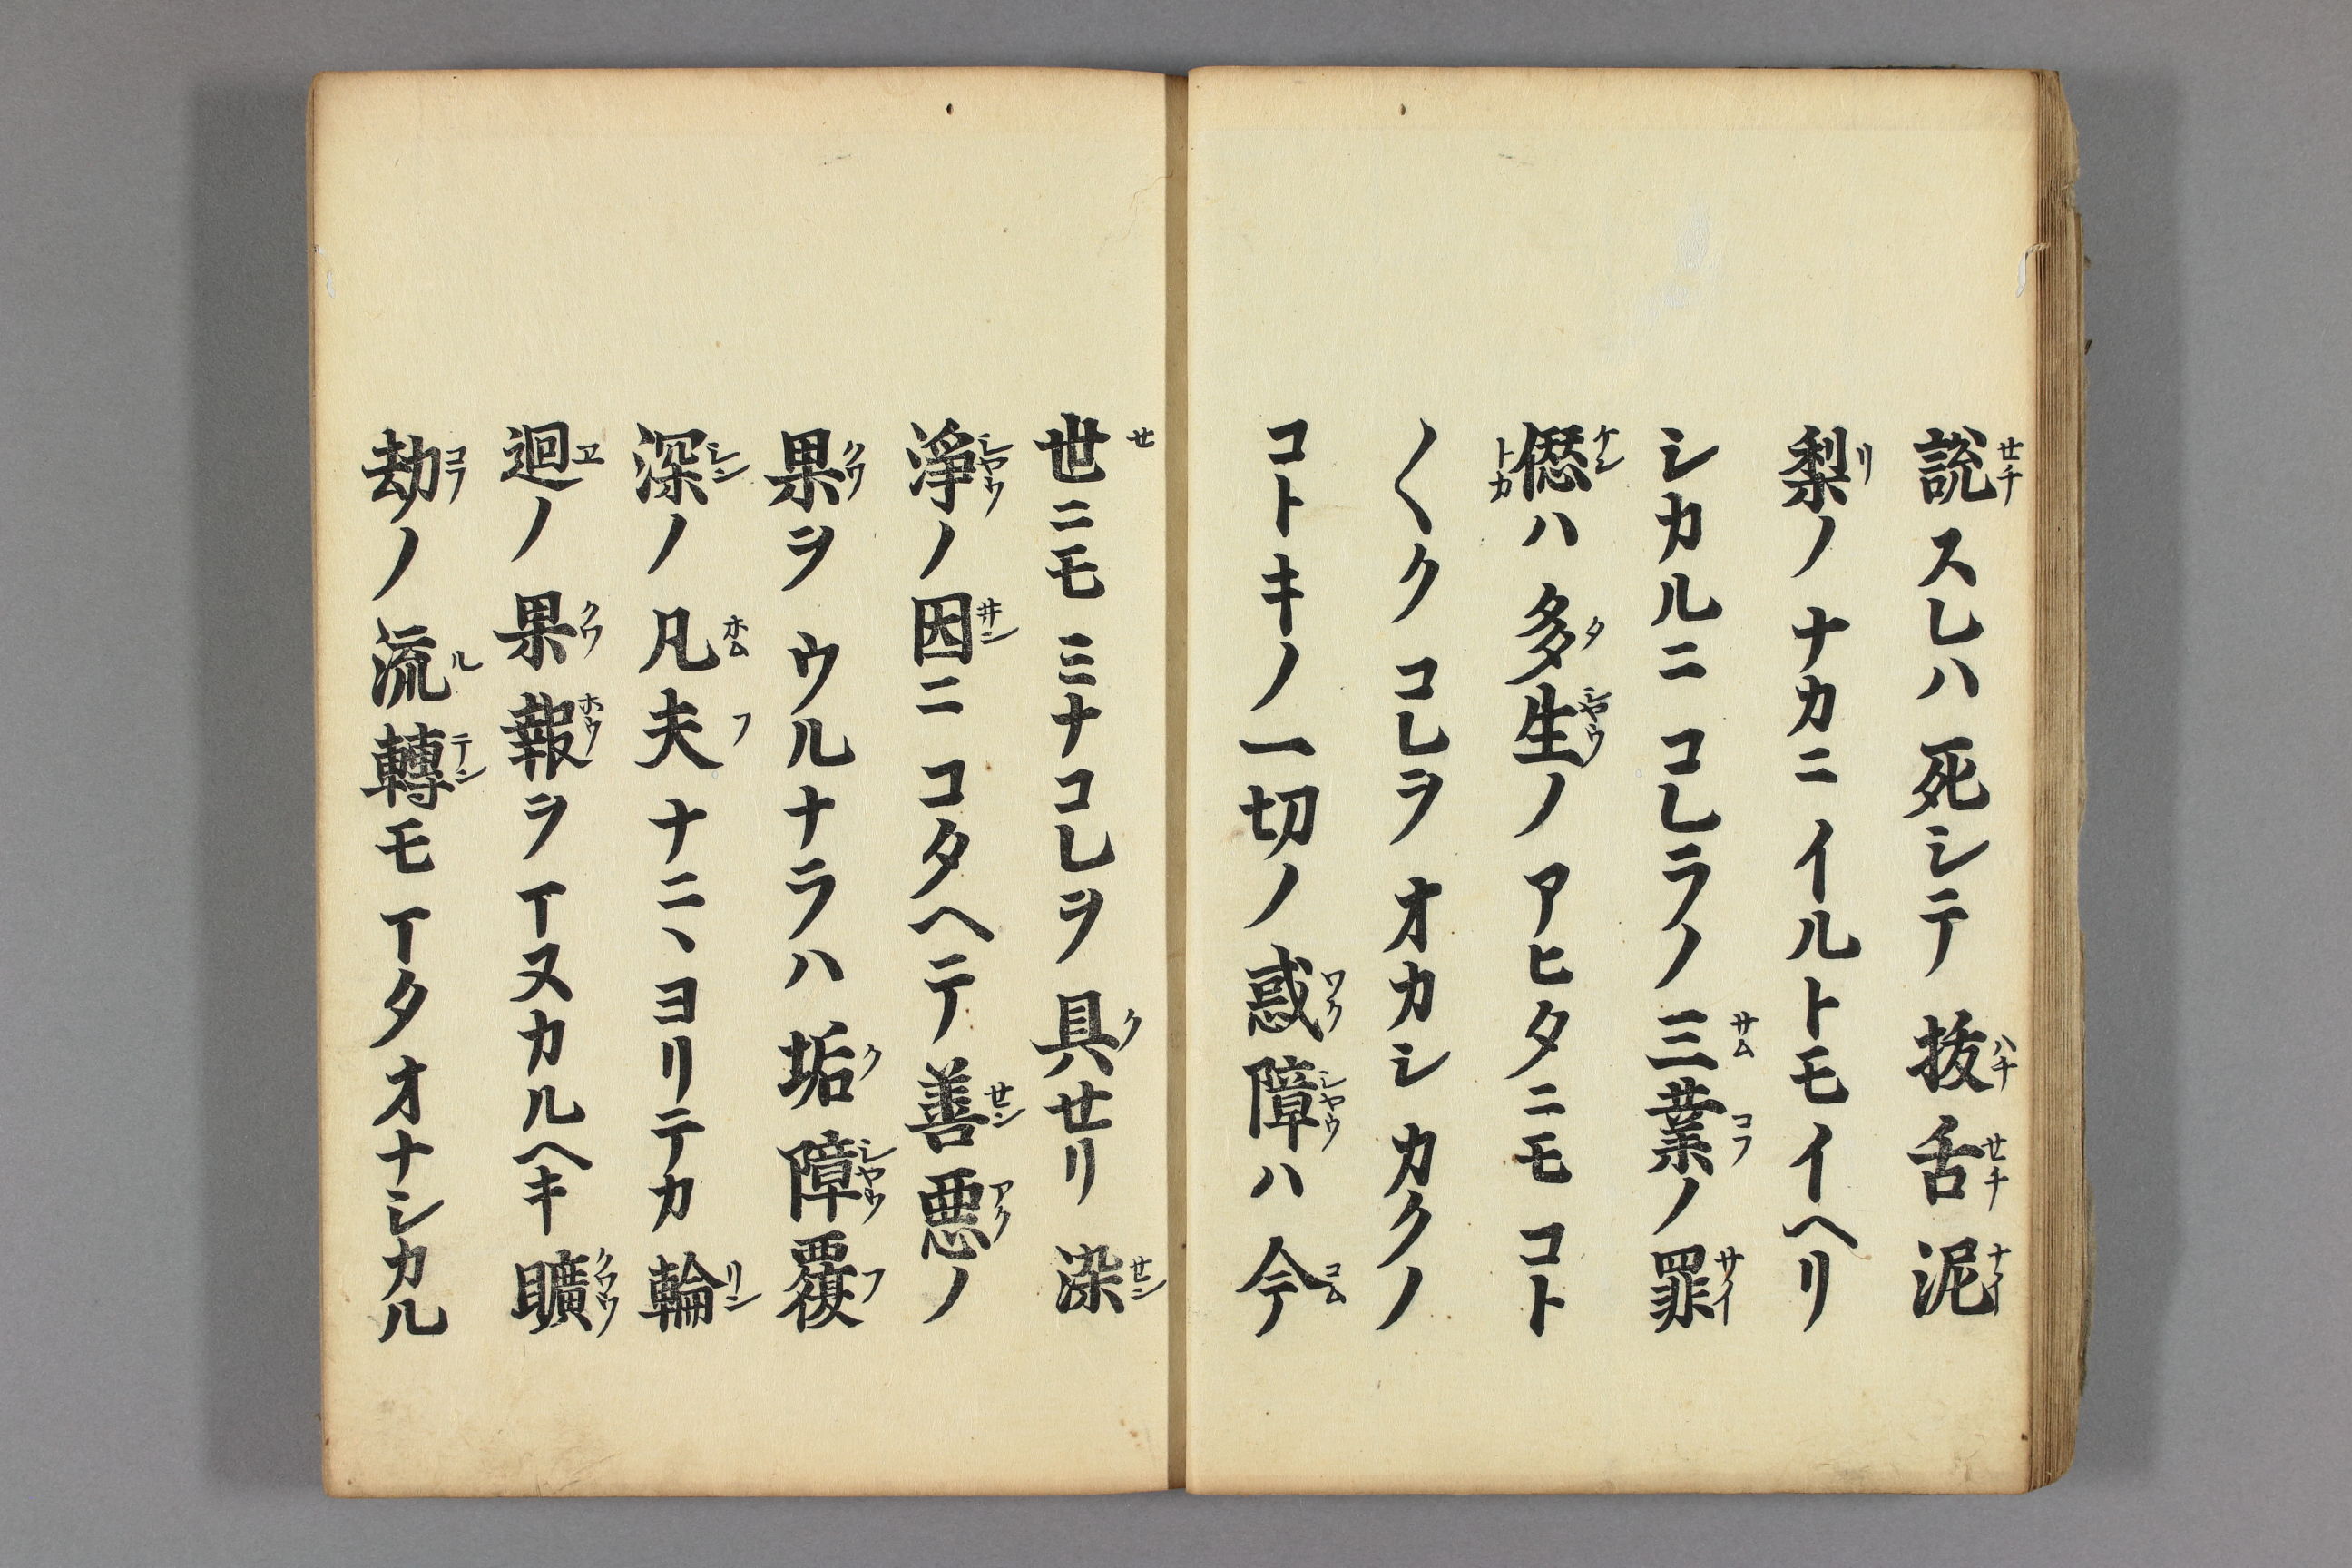 説スレハ死シテ抜舌泥
梨ノナカニイルトモイヘリ
シカルニコレラノ三業ノ罪
𠎝ハ多生ノアヒタニモコト
〱クコレヲオカシカクノ
コトキノ一切ノ惑障ハ今
世ニモミナコレヲ具セリ染
淨ノ因ニコタヘテ善悪ノ
果ヲウルナラハ垢障覆
深ノ凡夫ナニヽヨリテカ輪
迴ノ果報ヲイヌカルヘキ曠
劫ノ流轉モイタオナシカル